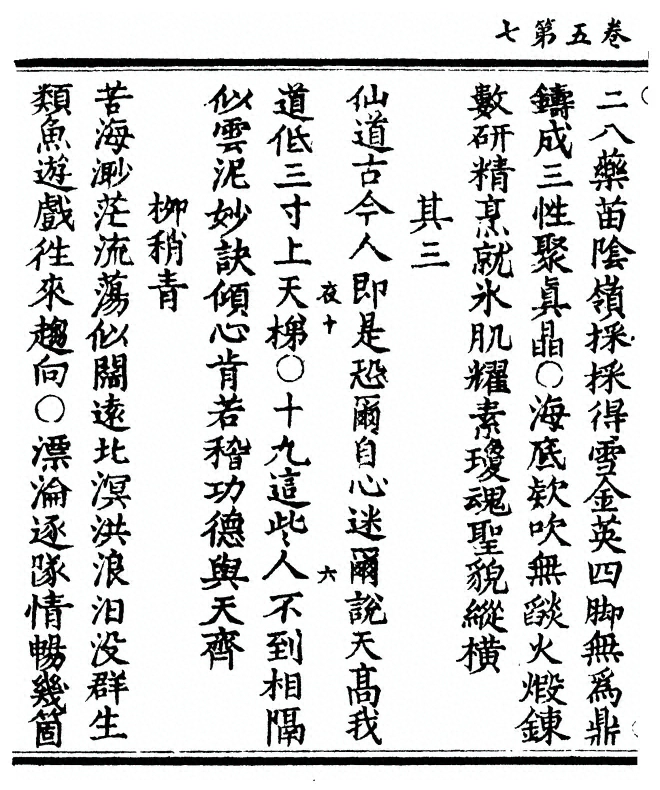 卷五第七
二八藥苗陰嶺採採得雪金英四脚無爲鼎
鑄成三性聚眞晶〇海底欸吹無燄火煅鍊
數研精烹就氷肌耀素瓊魂聖貌縱橫
其三
仙道古今人即是恐爾自心迷爾說天高我
夜十
六
道低三寸上天梯〇十九這些人不到相隔
似雲泥妙訣傾心肯若稽功德與天齊
柳稍青
苦海渺茫流蕩似闊遠北溟洪浪汨没群生
類魚遊戲徃來趨向〇漂淪逐隊情暢幾箇